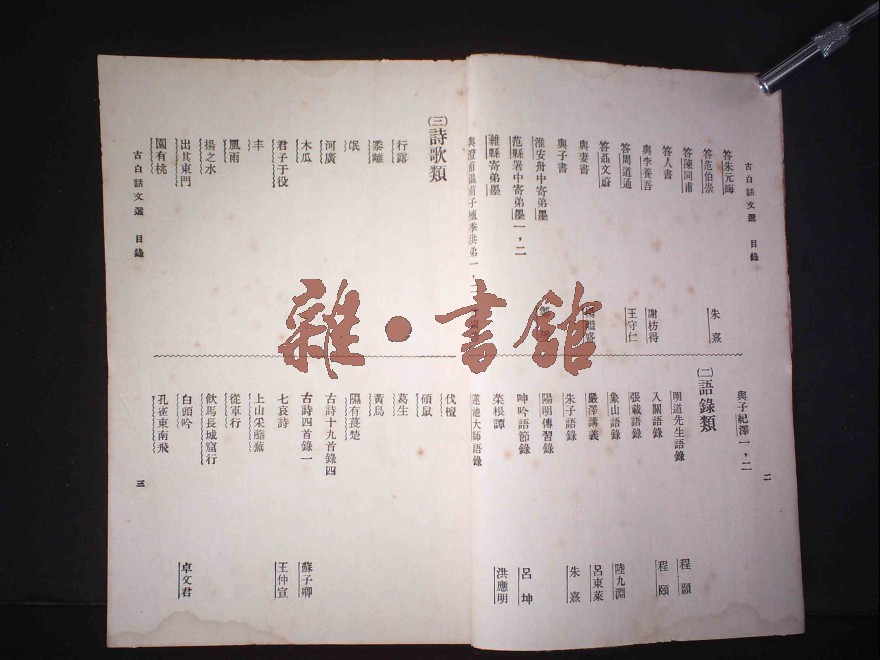 古白話文選　目錄
答朱元晦
答范伯崇　朱熹
答陳同甫
答人書
與李養吾　謝枋得
答周道通　王守仁
答聶文蔚
與妻書
與子書
淮安舟中寄弟墨
范縣署中寄弟墨一，二
濰縣寄弟墨
與子紀澤一，二
㈡語錄類
明道先生語錄　程顥
入關語錄　程頤
張載語錄
象山語錄　陸九淵
嚴澤講義　呂東萊
朱子語錄　朱熹
陽明傳習錄
呻吟語節錄　呂坤
菜根譚　洪應明
蓮池大師語錄
二
㈢詩歌類
行露
黍離
氓
河廣
木瓜
君子于役
丰
風雨
揚之水
出其東門
園有桃
古白話文選　目錄
伐檀
碩鼠
葛生
黃鳥
隰有萇楚
古詩十九首錄四
古詩四首錄一　蘇子卿
七哀詩　王仲宣
上山采蘼蕪
從軍行
飲馬長城窟行
白頭吟　卓文君
孔雀東南飛
三
雜・書館